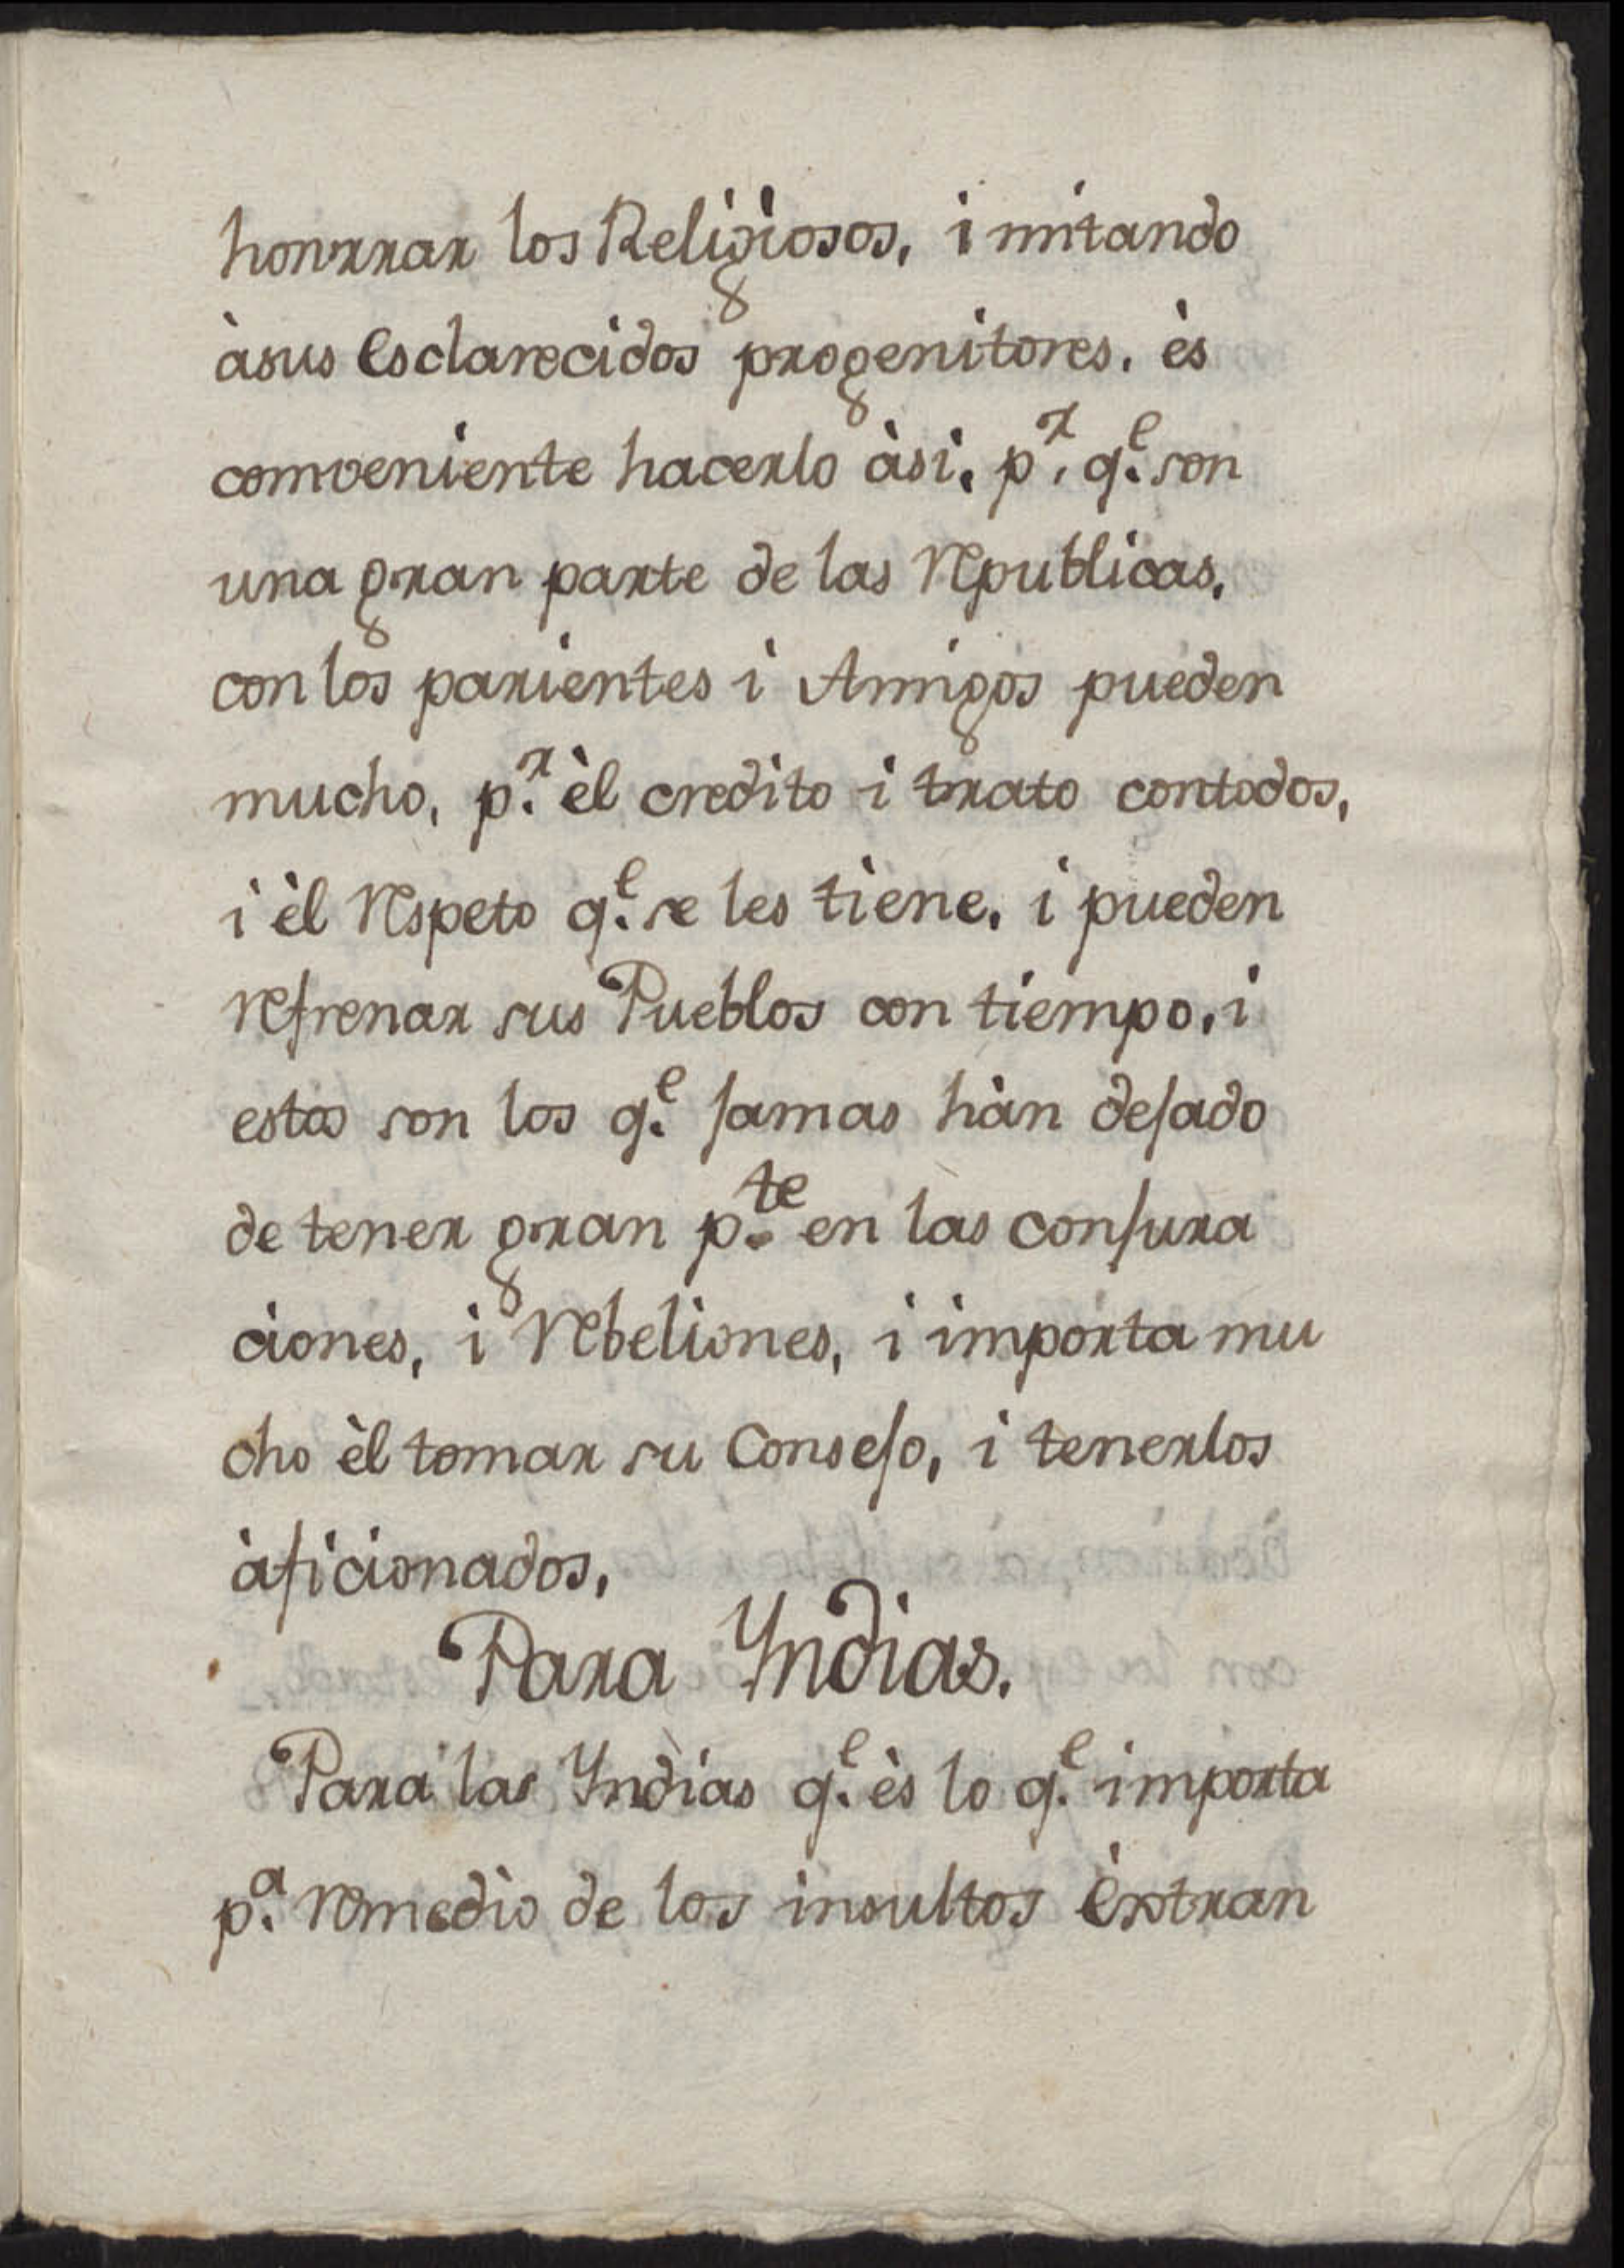 honrrar los Religiosos, imitando
àsus esclarecidos progenitores. ès
comveniente hacerlo àsi. p.r q.e son
una gran parte de las Republicas.
con los parientes i Amigos pueden
mucho, p.r èl credito i trato contodos,
i èl Respeto q.e se les tiene. i pueden
refrenar sus Pueblos con tiempo. i
estos son los q.e jamas hàn dejado
de tener gran p.te en las conjura
ciones, i Rebeliones, i importa mu
cho èl tomar su Consejo, i tenerlos
àficionados.
Para Yndias.
Para las Yndias q.e ès lo q.e importa
p.a remedio de los insultos èxtran